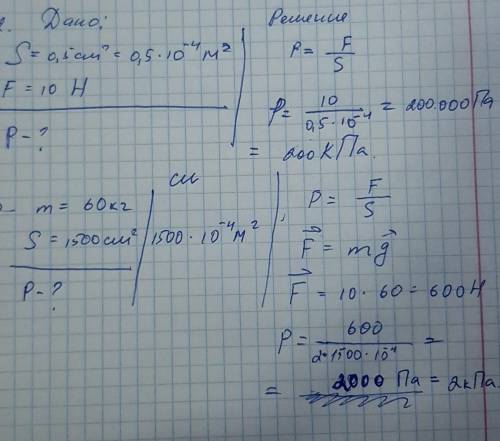 Дано:
S = 0,5 см² = 0,5 · 10⁻⁴ м²
F = 10 Н
P - ?
Решение
P = F/S
P = 10/(0,5 · 10⁻⁴) = 200.000 Па
= 200 КПа.
m = 60 кг
S = 1500 см²
P - ?
си
1500 · 10⁻⁴ м²
P = F/S
F⃗ = mg⃗
F⃗ = 10 · 60 = 600 Н
P = 600/(2 · 1500 · 10⁻⁴) =
= 2000 Па = 2 кПа.